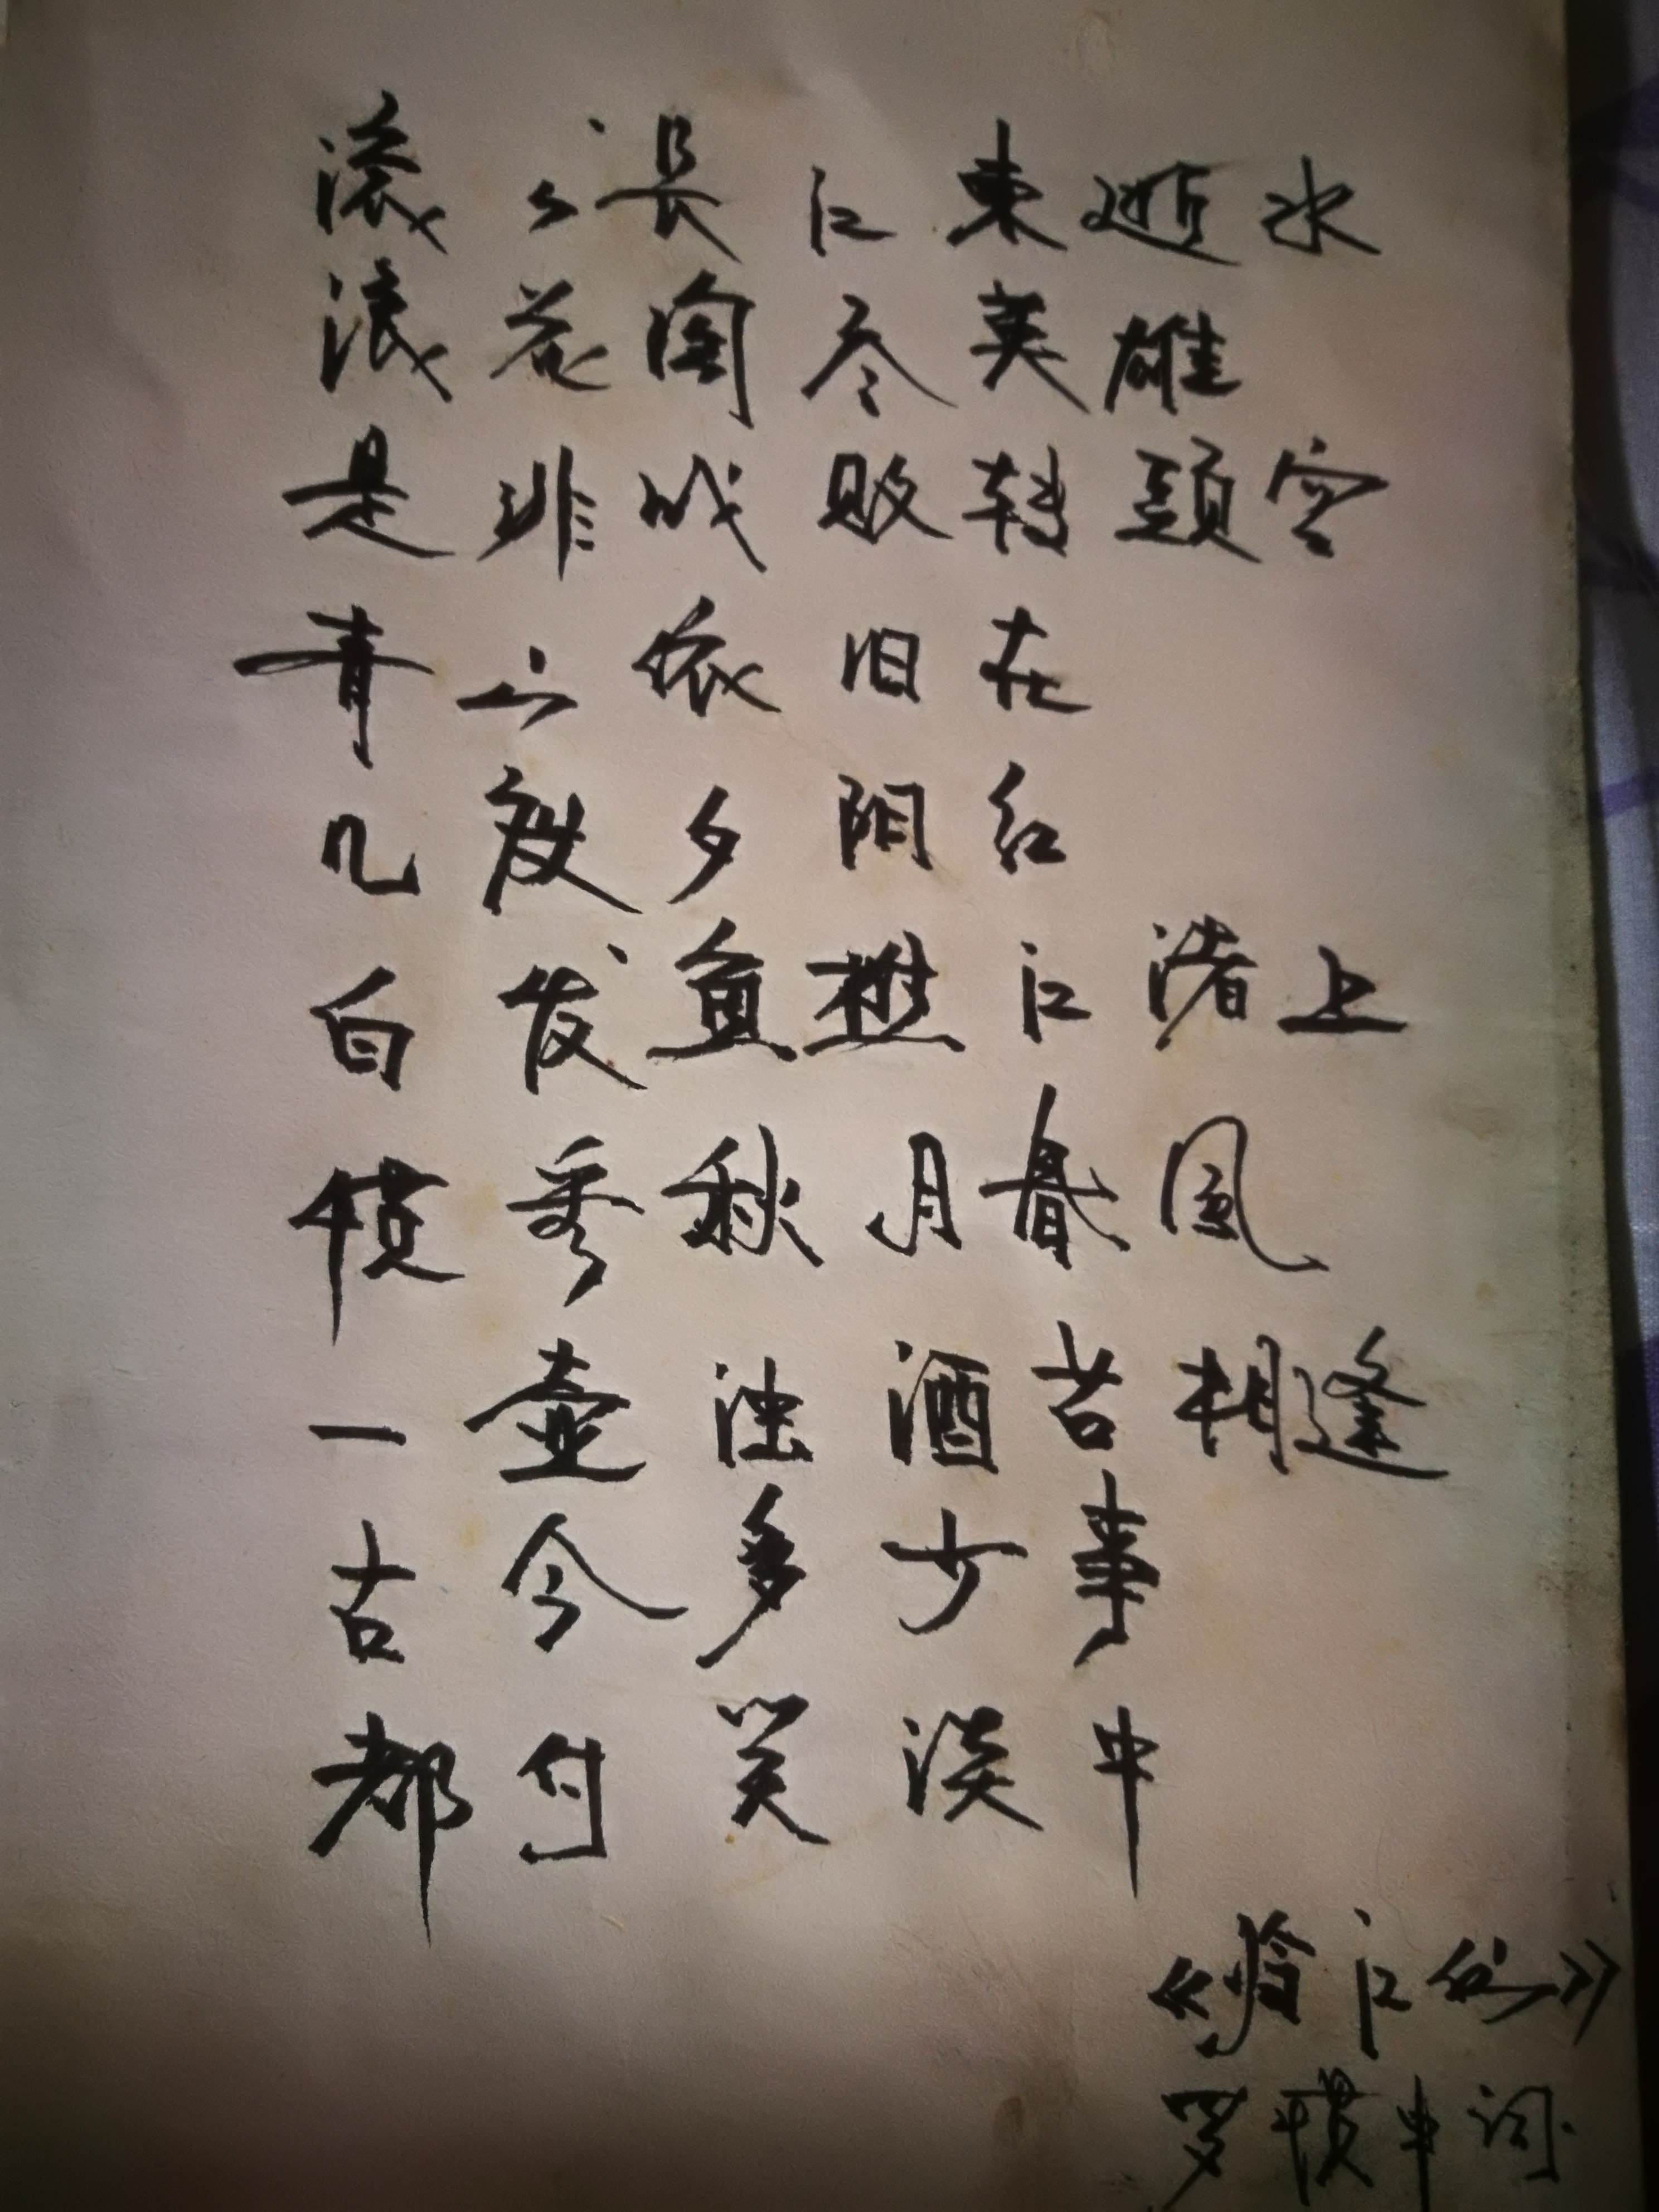 滚々长江東逝水
浪花淘尽英雄
是非成败转頭空
青山依旧在
几度夕阳红
白发鱼樵江渚上
惯看秋月春风
一壶浊酒喜相逢
古今多少事
都付笑谈中
《临江仙》
罗惯中词